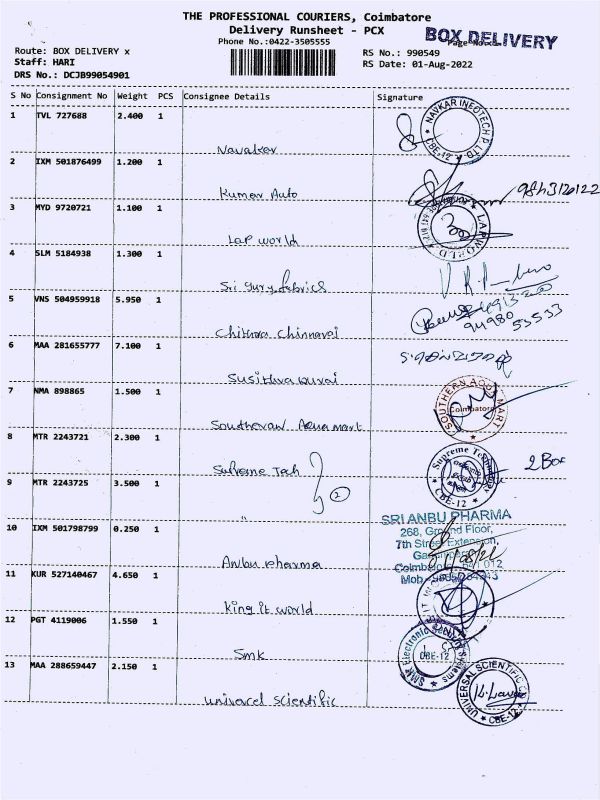 THE PROFESSIONAL COURIERS, Coimbatore
Delivery Runsheet - PCX
BOX DELIVERY
Phone No.:0422-3505555
Route: BOX DELIVERY x
RS No.: 990549
Staff: HARI
RS Date: 01-Aug-2022
DRS No.: DCJB99054901
S No Consignment No Weight PCS Consignee Details Signature
1 TVL 727688 2.400 1
Navalker
NAVKAR INFOTECH P LTD CBE-12
2 IXM 501876499 1.200 1
Kumar Auto
3 MYD 9720721 1.100 1
Lap world
LAPWORLD
4 SLM 5184938 1.300 1
Sri guru fabrics
5 VNS 504959918 5.950 1
Chithra Chinnavai
94980 53533
6 MAA 281655777 7.100 1
7 NMA 898865 1.500 1
Southeran Aqua mart
SOUTHERN AQUA MART Coimbatore
8 MTR 2243721 2.300 1
Supreme Tech
2
Supreme CBE-12
2 Box
9 MTR 2243725 3.500 1
"
10 IXM 501798799 0.250 1
Anbu pharma
SRI ANBU PHARMA
268, Ground Floor,
7th Street Extension,
11 KUR 527140467 4.650 1
King it world
12 PGT 4119006 1.550 1
SMK
SMK Electronic Security Systems CBE-12
13 MAA 288659447 2.150 1
univercel scientific
UNIVERSAL SCIENTIFIC CBE-12